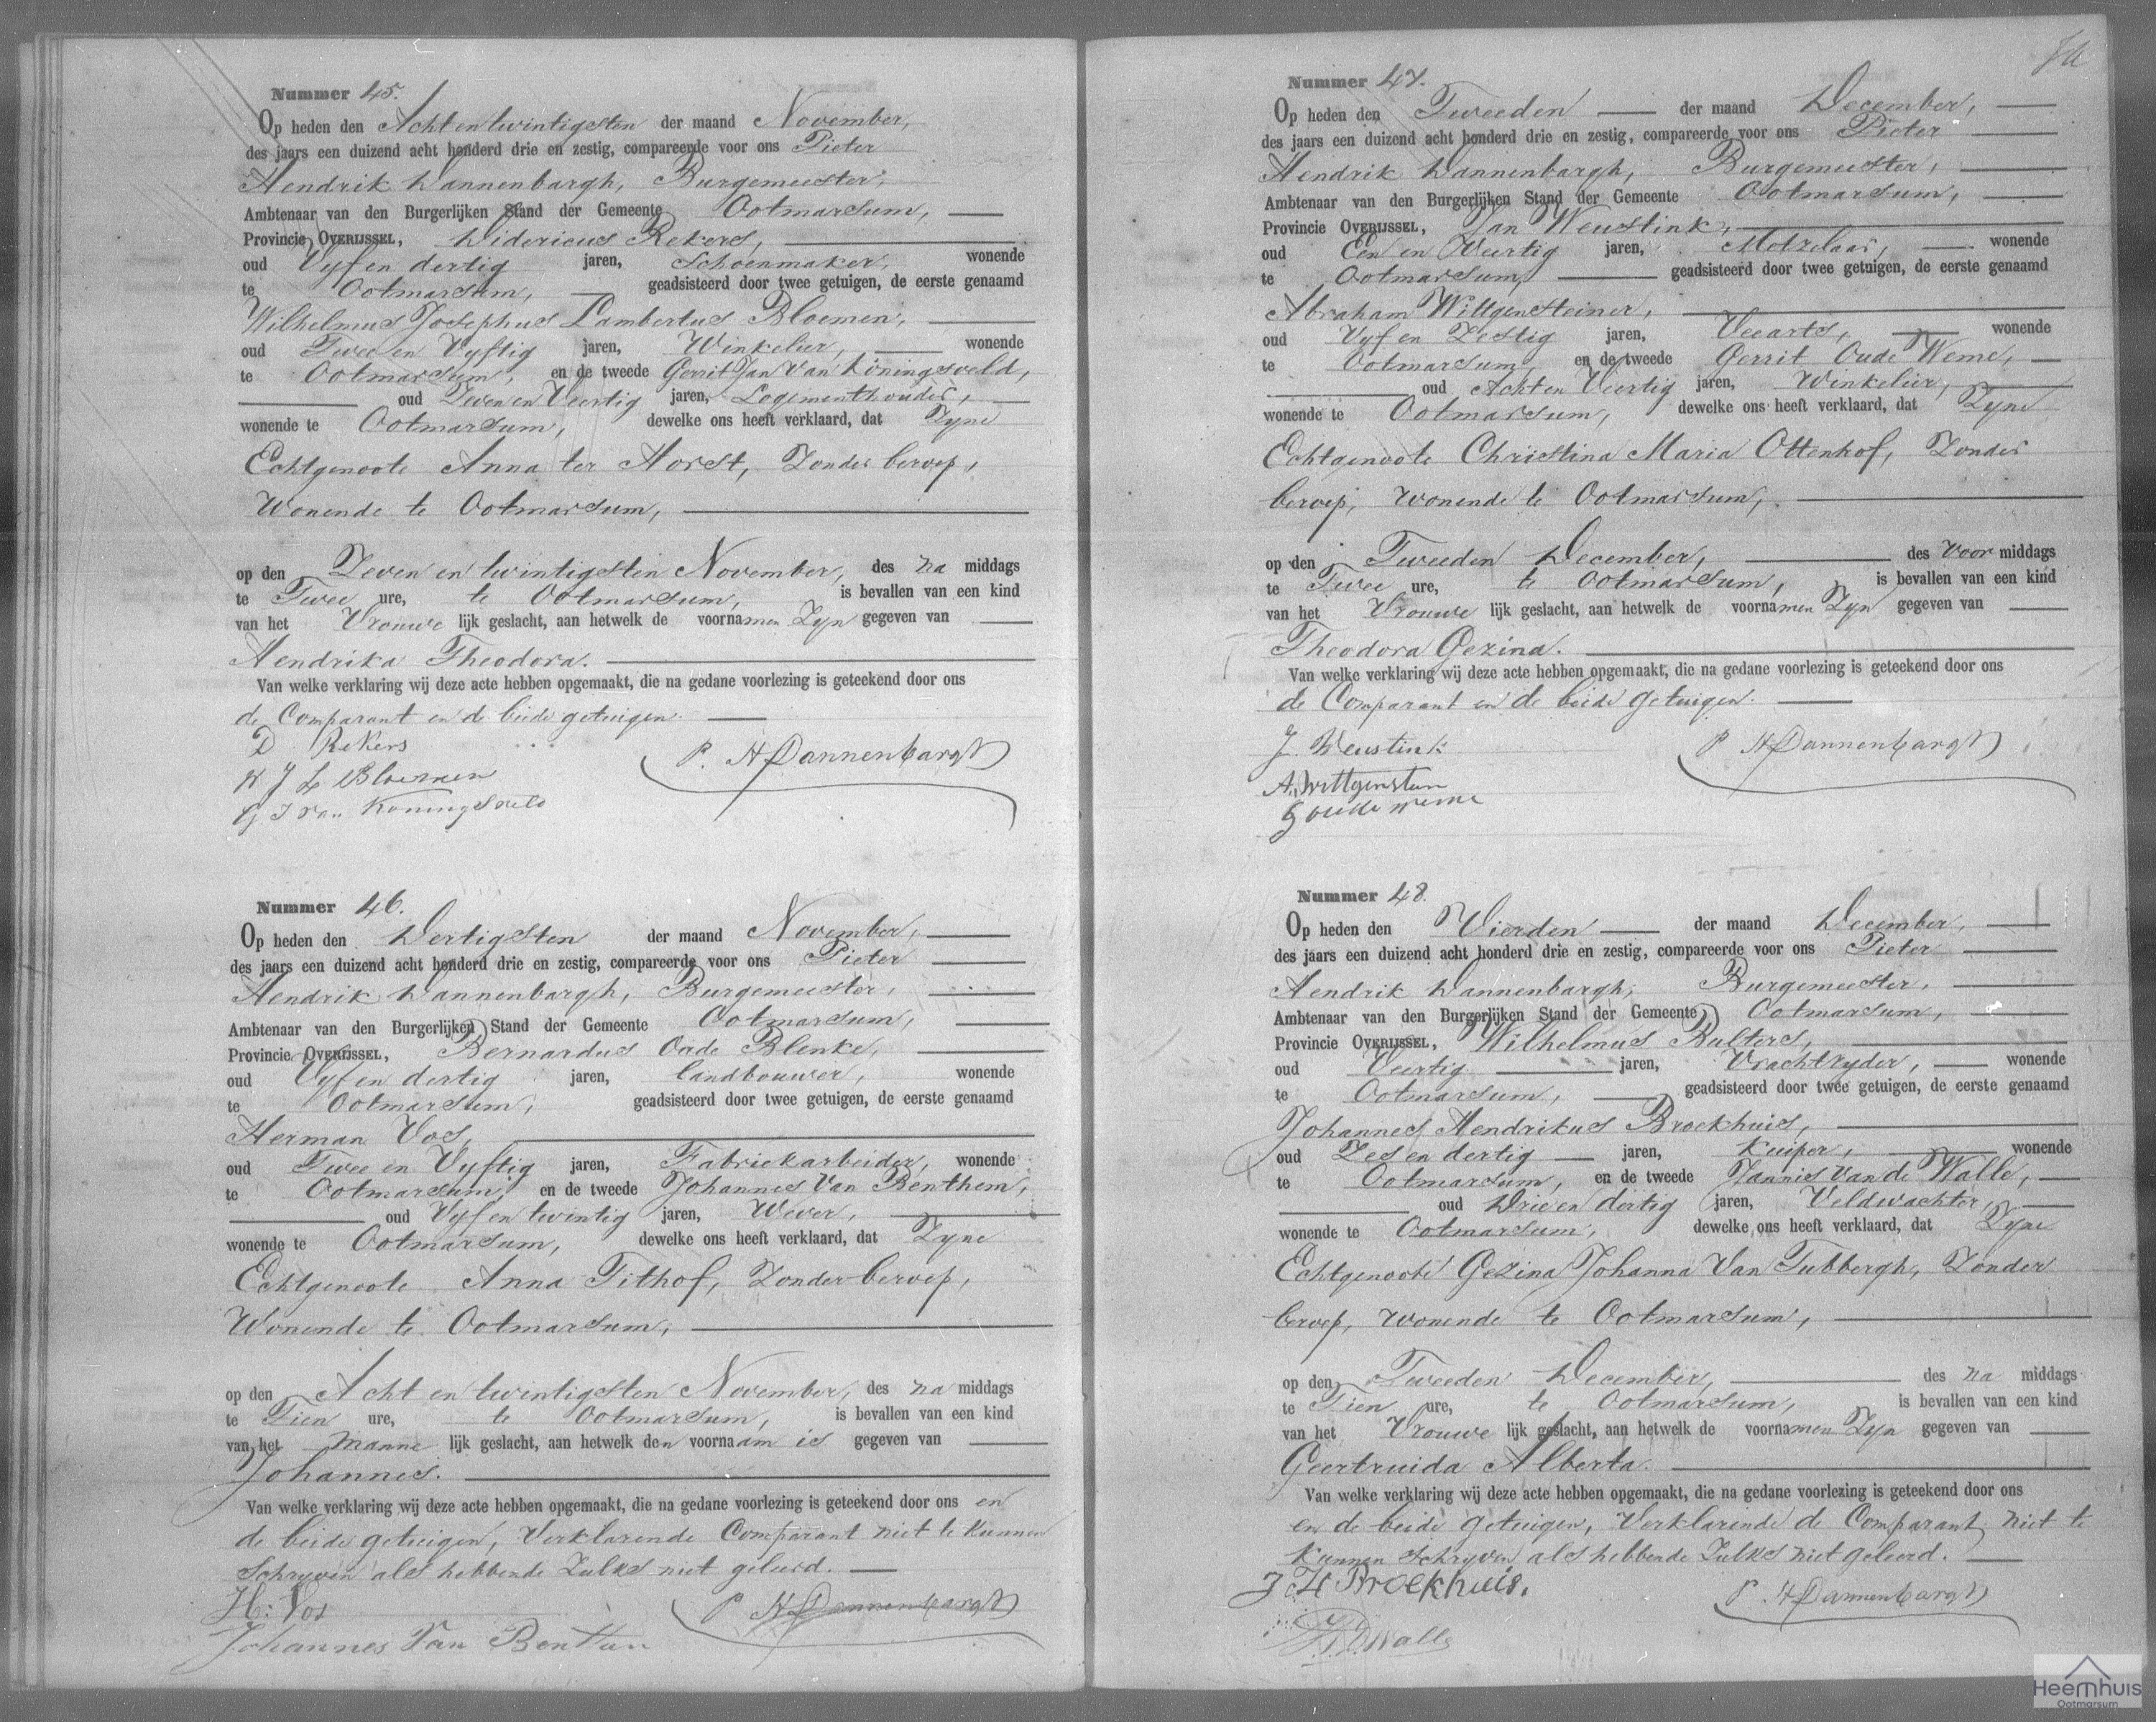 Nummer 45.
Op heden den Achtentwintigsten der maand November,
des jaars een duizend acht honderd drie en zestig, compareerde voor ons Pieter
Hendrik Dannenbargh, Burgemeester,
Ambtenaar van den Burgerlijken Stand der Gemeente Ootmarsum,
Provincie OVERIJSSEL, Didericus Rekers,
oud Vyf en dertig jaren, Schoenmaker, wonende
te Ootmarsum, geadsisteerd door twee getuigen, de eerste genaamd
Wilhelmus Josephus Lambertus Bloemen,
oud Twee en Vyftig jaren, Winkelier, wonende
te Ootmarsum, en de tweede Gerrit Jan Van Koningsveld,
oud Zeven en Veertig jaren, Logementhouder,
wonende te Ootmarsum, dewelke ons heeft verklaard, dat Zyne
Echtgenoote Anna ter Horst, Zonder beroep,
Wonende te Ootmarsum,
op den Zeven en twintigsten November, des na middags
te Twee ure, te Ootmarsum, is bevallen van een kind
van het Vrouwe lijk geslacht, aan hetwelk de voornamen Zyn gegeven van
Hendrika Theodora.
Van welke verklaring wij deze acte hebben opgemaakt, die na gedane voorlezing is geteekend door ons
de Comparant en de beide getuigen.
D Rekers
P. H Dannenbargh
W J L Bloemen
G J van Koningsveld
Nummer 46.
Op heden den Dertigsten der maand November,
des jaars een duizend acht honderd drie en zestig, compareerde voor ons Pieter
Hendrik Dannenbargh, Burgemeester,
Ambtenaar van den Burgerlijken Stand der Gemeente Ootmarsum,
Provincie OVERIJSSEL, Bernardus Oude Blenke,
oud Vyf en dertig jaren, landbouwer, wonende
te Ootmarsum, geadsisteerd door twee getuigen, de eerste genaamd
Herman Vos,
oud Twee en Vyftig jaren, Fabriekarbeider, wonende
te Ootmarsum, en de tweede Johannes Van Benthem,
oud Vyf en twintig jaren, Wever,
wonende te Ootmarsum, dewelke ons heeft verklaard, dat Zyne
Echtgenoote Anna Tithof, Zonder beroep,
Wonende te Ootmarsum,
op den Acht en twintigsten November, des na middags
te Tien ure, te Ootmarsum, is bevallen van een kind
van het Manne lijk geslacht, aan hetwelk den voornaam is gegeven van
Johannes.
Van welke verklaring wij deze acte hebben opgemaakt, die na gedane voorlezing is geteekend door ons en
de beide getuigen, Verklarende Comparant niet te kunnen
Schryven als hebbende Zulks niet geleerd.
H: Vos
P H Dannenbargh
Johannes Van Benthem
Nummer 47.
Op heden den Tweeden der maand December,
des jaars een duizend acht honderd drie en zestig, compareerde voor ons Pieter
Hendrik Dannenbargh, Burgemeester,
Ambtenaar van den Burgerlijken Stand der Gemeente Ootmarsum,
Provincie OVERIJSSEL, Jan Weustink,
oud Een en Veertig jaren, Metzelaar, wonende
te Ootmarsum, geadsisteerd door twee getuigen, de eerste genaamd
Abraham Wittgensteiner,
oud Vyf en Zestig jaren, Veearts, wonende
te Ootmarsum, en de tweede Gerrit Oude Weme,
oud Acht en Veertig jaren, Winkelier,
wonende te Ootmarsum, dewelke ons heeft verklaard, dat Zyne
Echtgenoote Christina Maria Ottenhof, Zonder
beroep, wonende te Ootmarsum,
op den Tweeden December, des Voor middags
te Twee ure, te Ootmarsum, is bevallen van een kind
van het Vrouwe lijk geslacht, aan hetwelk de voornamen Zyn gegeven van
Theodora Gezina.
Van welke verklaring wij deze acte hebben opgemaakt, die na gedane voorlezing is geteekend door ons
de Comparant en de beide getuigen.
J Weustink
P H Dannenbargh
A. Wittgenstein
G oude weme
Nummer 48.
Op heden den Vierden der maand December,
des jaars een duizend acht honderd drie en zestig, compareerde voor ons Pieter
Hendrik Dannenbargh, Burgemeester,
Ambtenaar van den Burgerlijken Stand der Gemeente Ootmarsum,
Provincie OVERIJSSEL, Wilhelmus Bulters,
oud Veertig jaren, Vrachtryder, wonende
te Ootmarsum, geadsisteerd door twee getuigen, de eerste genaamd
Johannes Hendrikus Broekhuis,
oud Zes en dertig jaren, Kuiper, wonende
te Ootmarsum, en de tweede Jannis Van de Walle,
oud Drie en dertig jaren, Veldwachter,
wonende te Ootmarsum, dewelke ons heeft verklaard, dat Zyne
Echtgenoote Gezina Johanna Van Tubbergh, Zonder
beroep, wonende te Ootmarsum,
op den Tweeden December, des na middags
te Tien ure, te Ootmarsum, is bevallen van een kind
van het Vrouwe lijk geslacht, aan hetwelk de voornamen Zyn gegeven van
Geertruida Alberta.
Van welke verklaring wij deze acte hebben opgemaakt, die na gedane voorlezing is geteekend door ons
en de beide getuigen, Verklarende de Comparant niet te
Kunnen Schryven als hebbende Zulks niet geleerd.
J H Broekhuis.
P. H Dannenbargh
Heemhuis
Ootmarsum